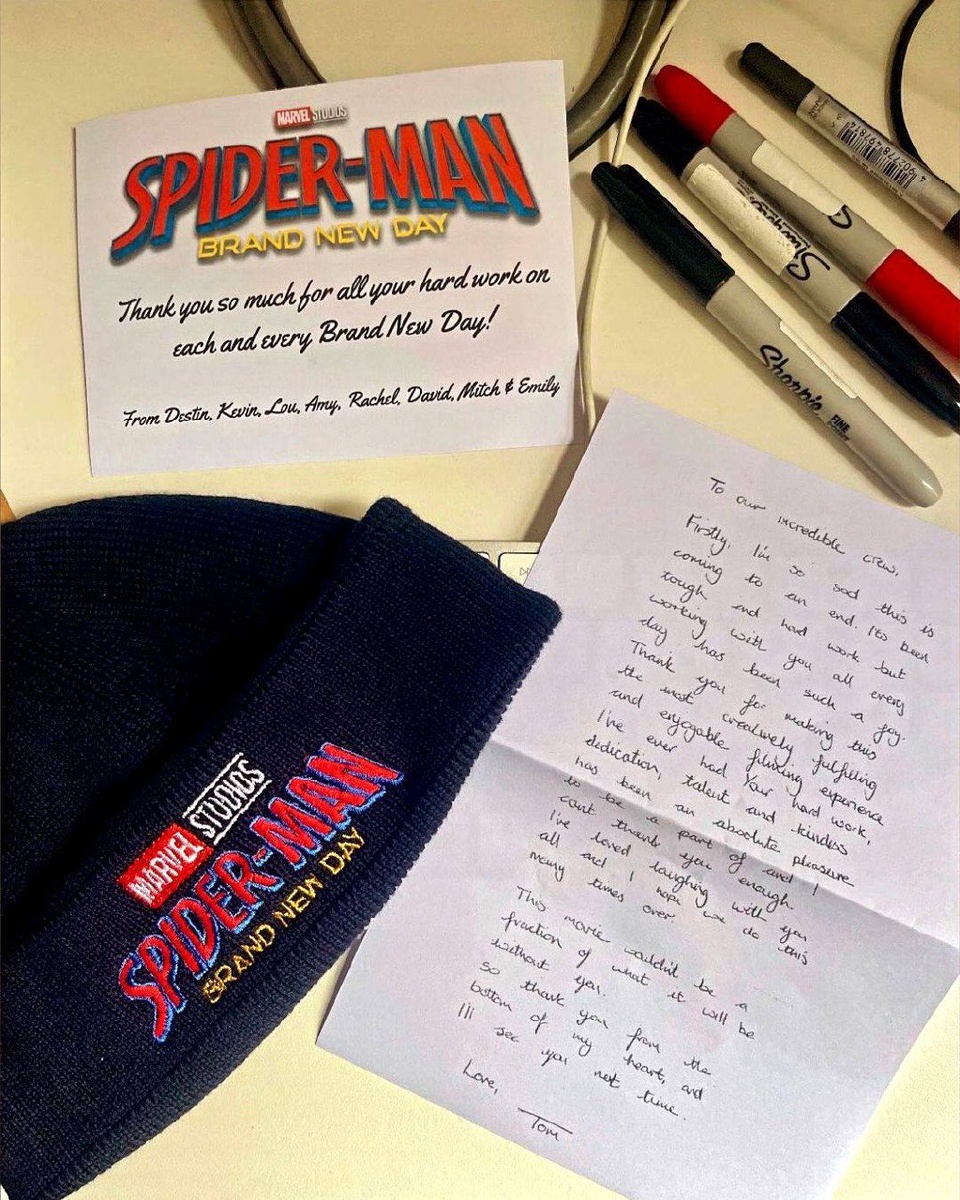 MARVEL STUDIOS
SPIDER-MAN
BRAND NEW DAY
Thank you so much for all your hard work on
each and every Brand New Day!
From Destin, Kevin, Lou, Amy, Rachel, David, Mitch & Emily
4902778497814
Sharpie
Sharpie
FINE
To our incredible crew,
Firstly, I'm so sad this is
coming to an end. It's been
tough and hard work but
working with you all every
day has been such a joy.
Thank you for making this
the most creatively fulfilling
and enjoyable filming experience
I've ever had. Your hard work,
dedication, talent and kindness
has been an absolute pleasure
to be a part of and I
cant thank you enough.
I've loved laughing with you
all and I hope we do this
many times over.
This movie wouldn't be a
fraction of what it will be
without you.
So thank you from the
bottom of my heart, and
I'll see you next time.
Love,
Tom
MARVEL STUDIOS
SPIDER-MAN
BRAND NEW DAY